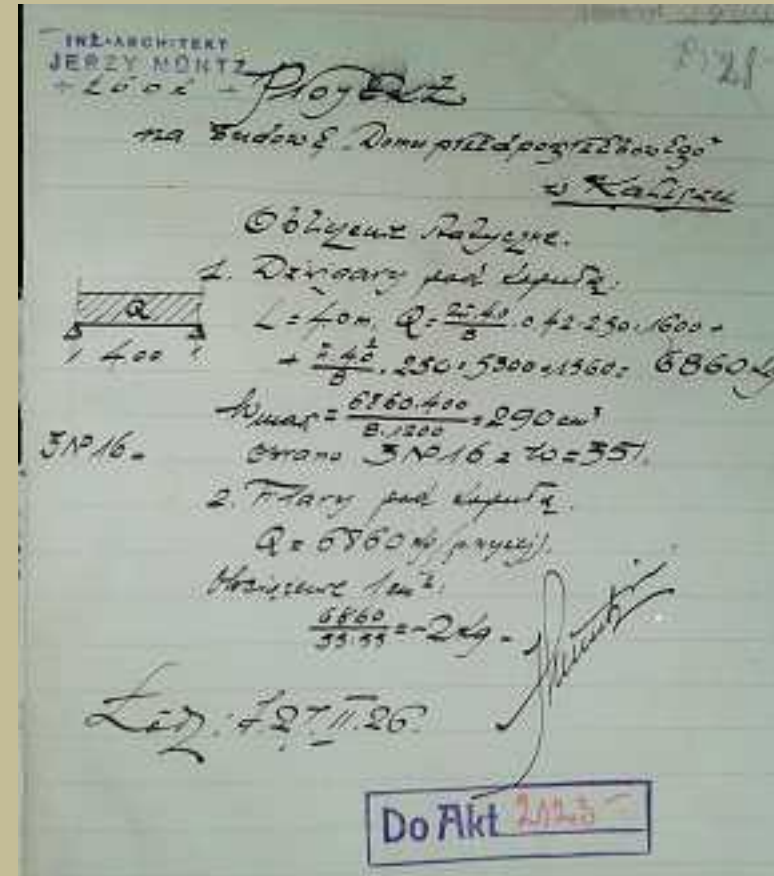 INŻ-ARCHITEKT
JERZY MÜNTZ
- ŁÓDŹ -
Projekt
na Budowę Domu przedpogrzebowego
w Kaliszu
Obliczenie statyczne.
1. Dźwigary pod kopułą.
Q
400
L = 4.0 m, Q = 0.42.250.1600 +
+ .250 = 5300+1560 = 6860 kg
Wmax = 6860.400 / 8.1200 = 290 cm³
3 Nº 16.
Obrano 3 Nº 16 z W = 351.
2. Filary pod kopułą.
Q = 6860 kg
Obciążenie 1 cm².
6860 / 55.55 = ~2 kg.
Łódź, 27.II.26.
Do Akt 2123